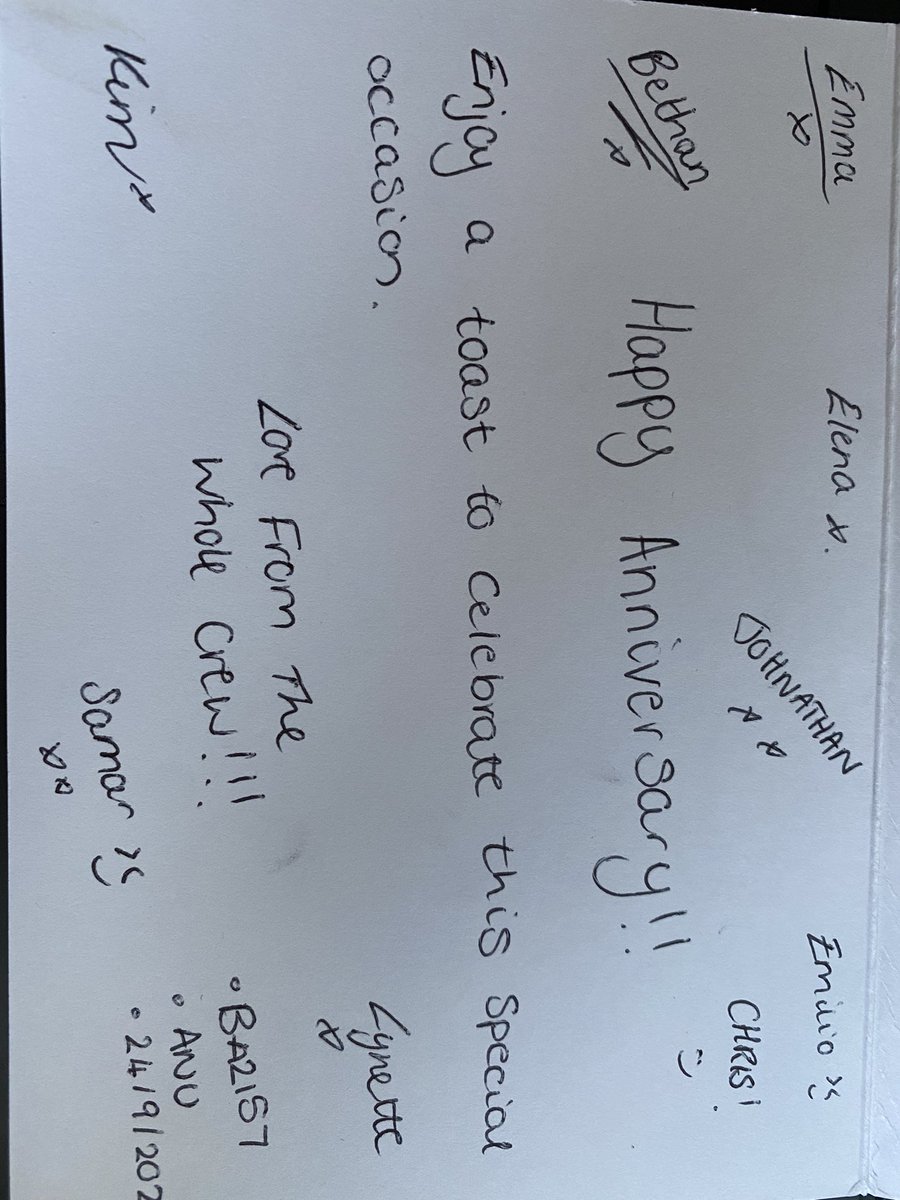 Emma x
Elena x.
Emilio :)
JOHNATHAN x x
CHRIS!
:)
Bethan x
Happy Anniversary!!
Enjoy a toast to celebrate this special
occasion.
Lynette x
Love From The
Whole Crew!!!
• BA2157
• ANU
• 24/9/202
Kim x
Samar :)
x x